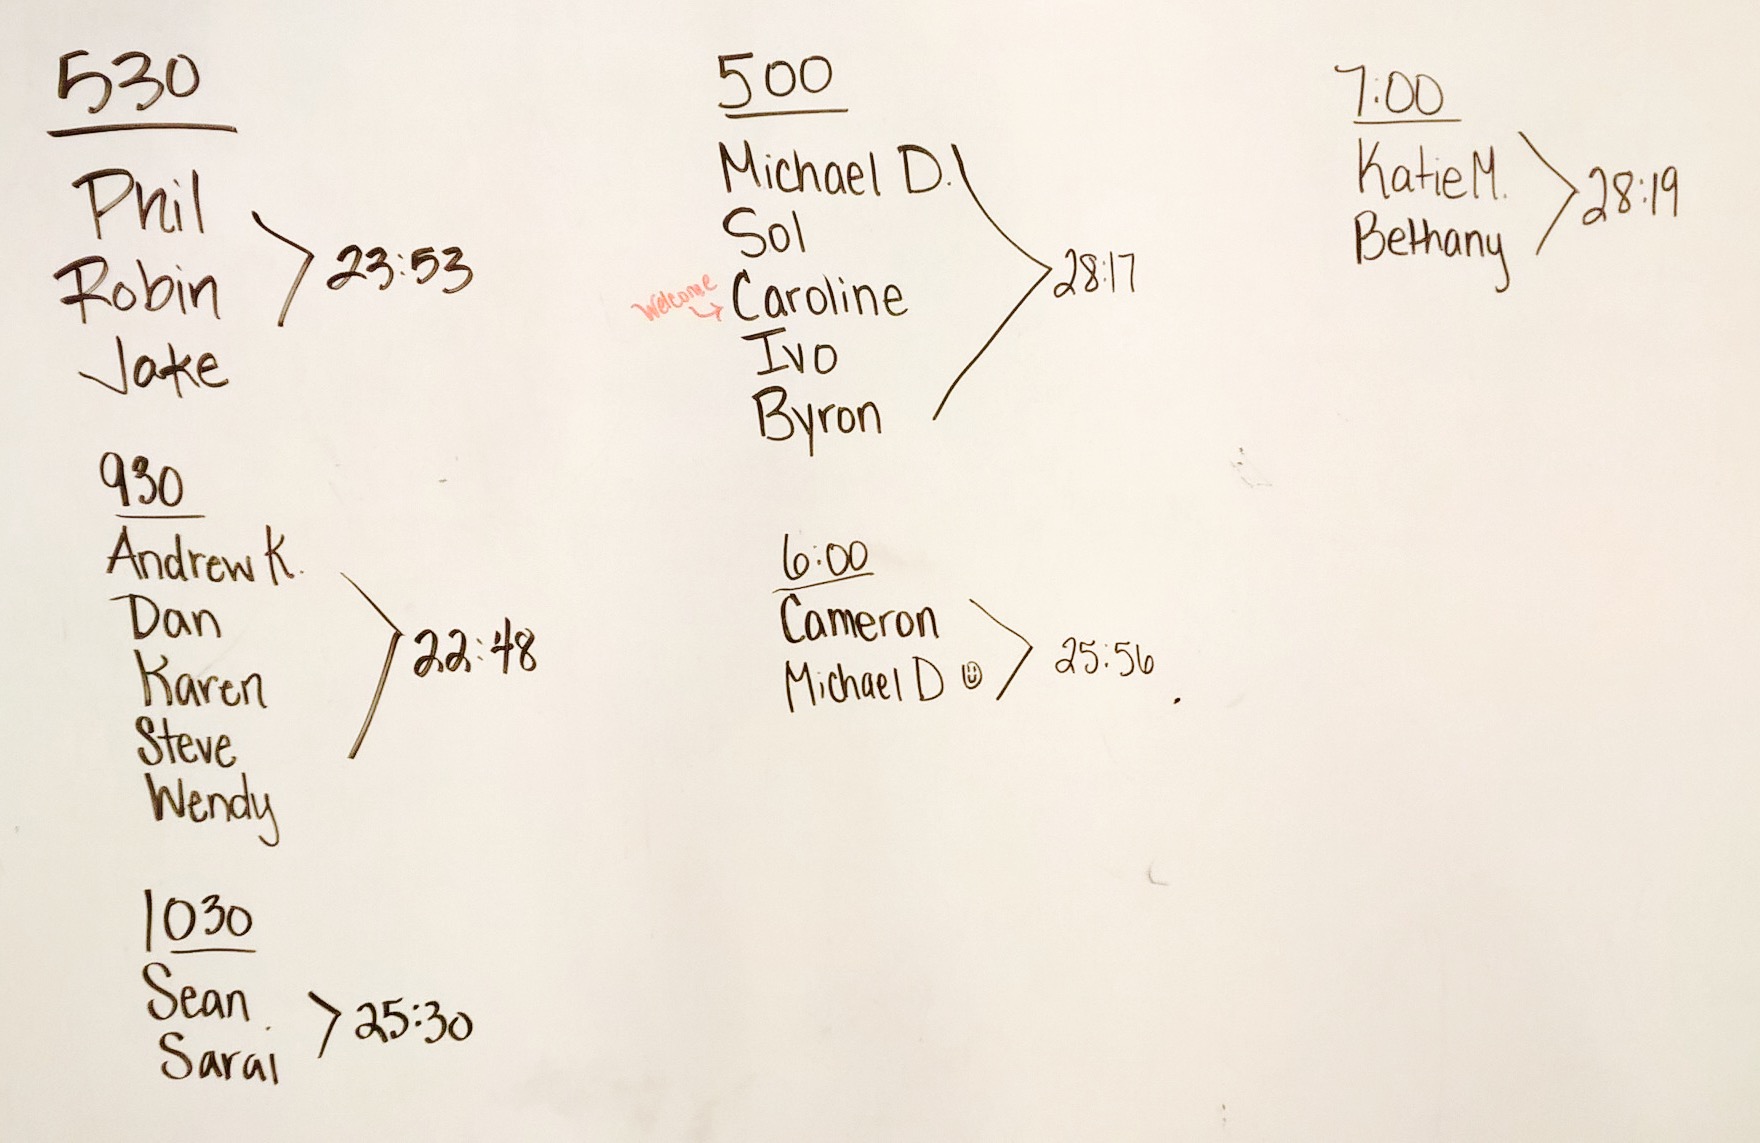 530
Phil
Robin
Jake
23:53
930
Andrew K.
Dan
Karen
Steve
Wendy
22:48
1030
Sean
Sarai
25:30
500
Michael D.
Sol
Welcome
Caroline
Ivo
Byron
28:17
6:00
Cameron
Michael D
25:56
7:00
Katie M.
Bethany
28:19